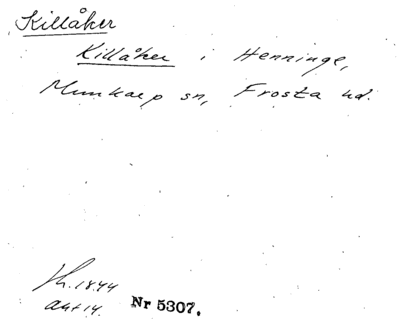 Killåker
Killåker i Henninge,
Munkarp sn, Frosta hd.
Lh. 1844
akt 14. Nr 5307.